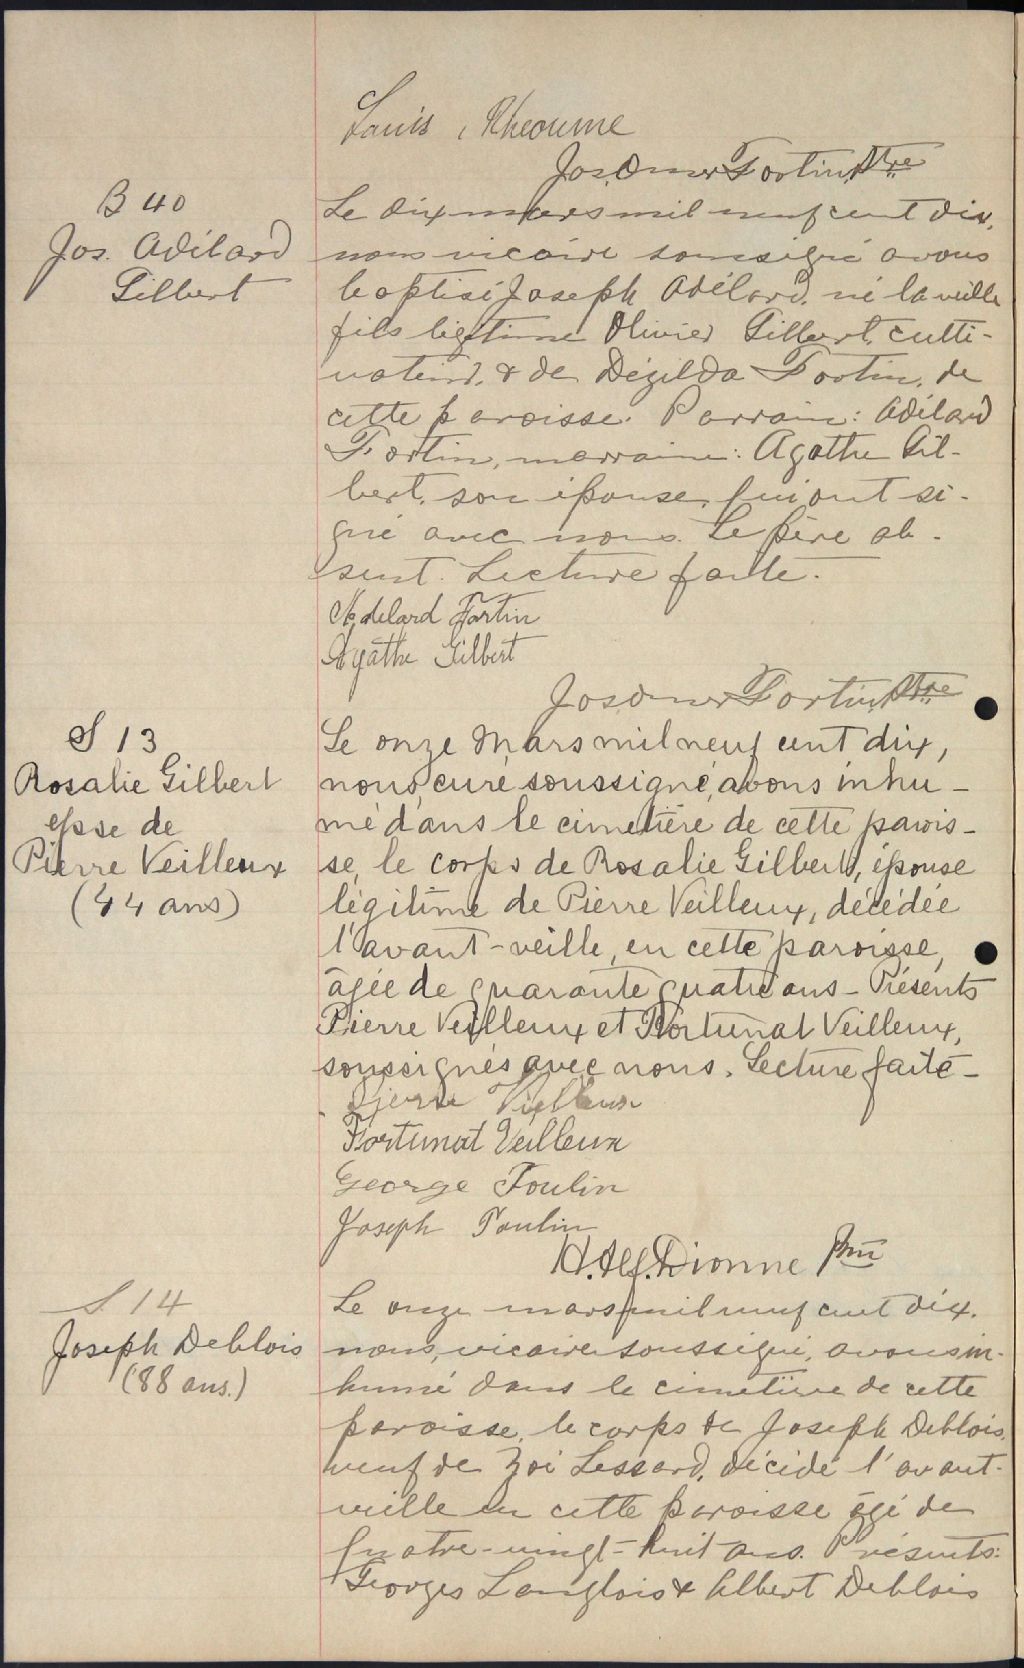 Louis Rheaume
Jos. Omer Fortin, Ptre
B 40
Jos. Adélard
Gilbert
Le dix mars mil neuf cent dix,
nous vicaire soussigné avons
baptisé Joseph Adélard, né la veille
fils légitime Olivier Gilbert, culti-
vateur, & de Dézilda Fortin, de
cette paroisse. Parrain: Adélard
Fortin, marraine: Agathe Gil-
bert, son épouse, qui ont si-
gné avec nous. Le père ab-
sent. Lecture faite.
Adelard Fortin
Agathe Gilbert
Jos Omer Fortin, Ptre
S 13
Rosalie Gilbert
epse de
Pierre Veilleux
(44 ans)
Le onze Mars mil neuf cent dix,
nous, curé soussigné, avons inhu-
mé dans le cimetière de cette parois-
se, le corps de Rosalie Gilbert, épouse
légitime de Pierre Veilleux, décédée
l'avant-veille, en cette paroisse,
âgée de quarante quatre ans - Présents
Pierre Veilleux et Fortunat Veilleux,
soussignés avec nous. Lecture faite -
Pierre Veilleux
Fortunat Veilleux
George Poulin
Joseph Poulin
H. Alf. Dionne Ptre
S. 14
Joseph Deblois
(88 ans.)
Le onze mars mil neuf cent dix.
nous, vicaire soussigné, avons in-
humé dans le cimetière de cette
paroisse, le corps de Joseph Deblois,
veuf de Zoé Lessard, décédé l'avant-
veille en cette paroisse âgé de
quatre-vingt-huit ans. Présents:
Georges Langlois & Albert Deblois